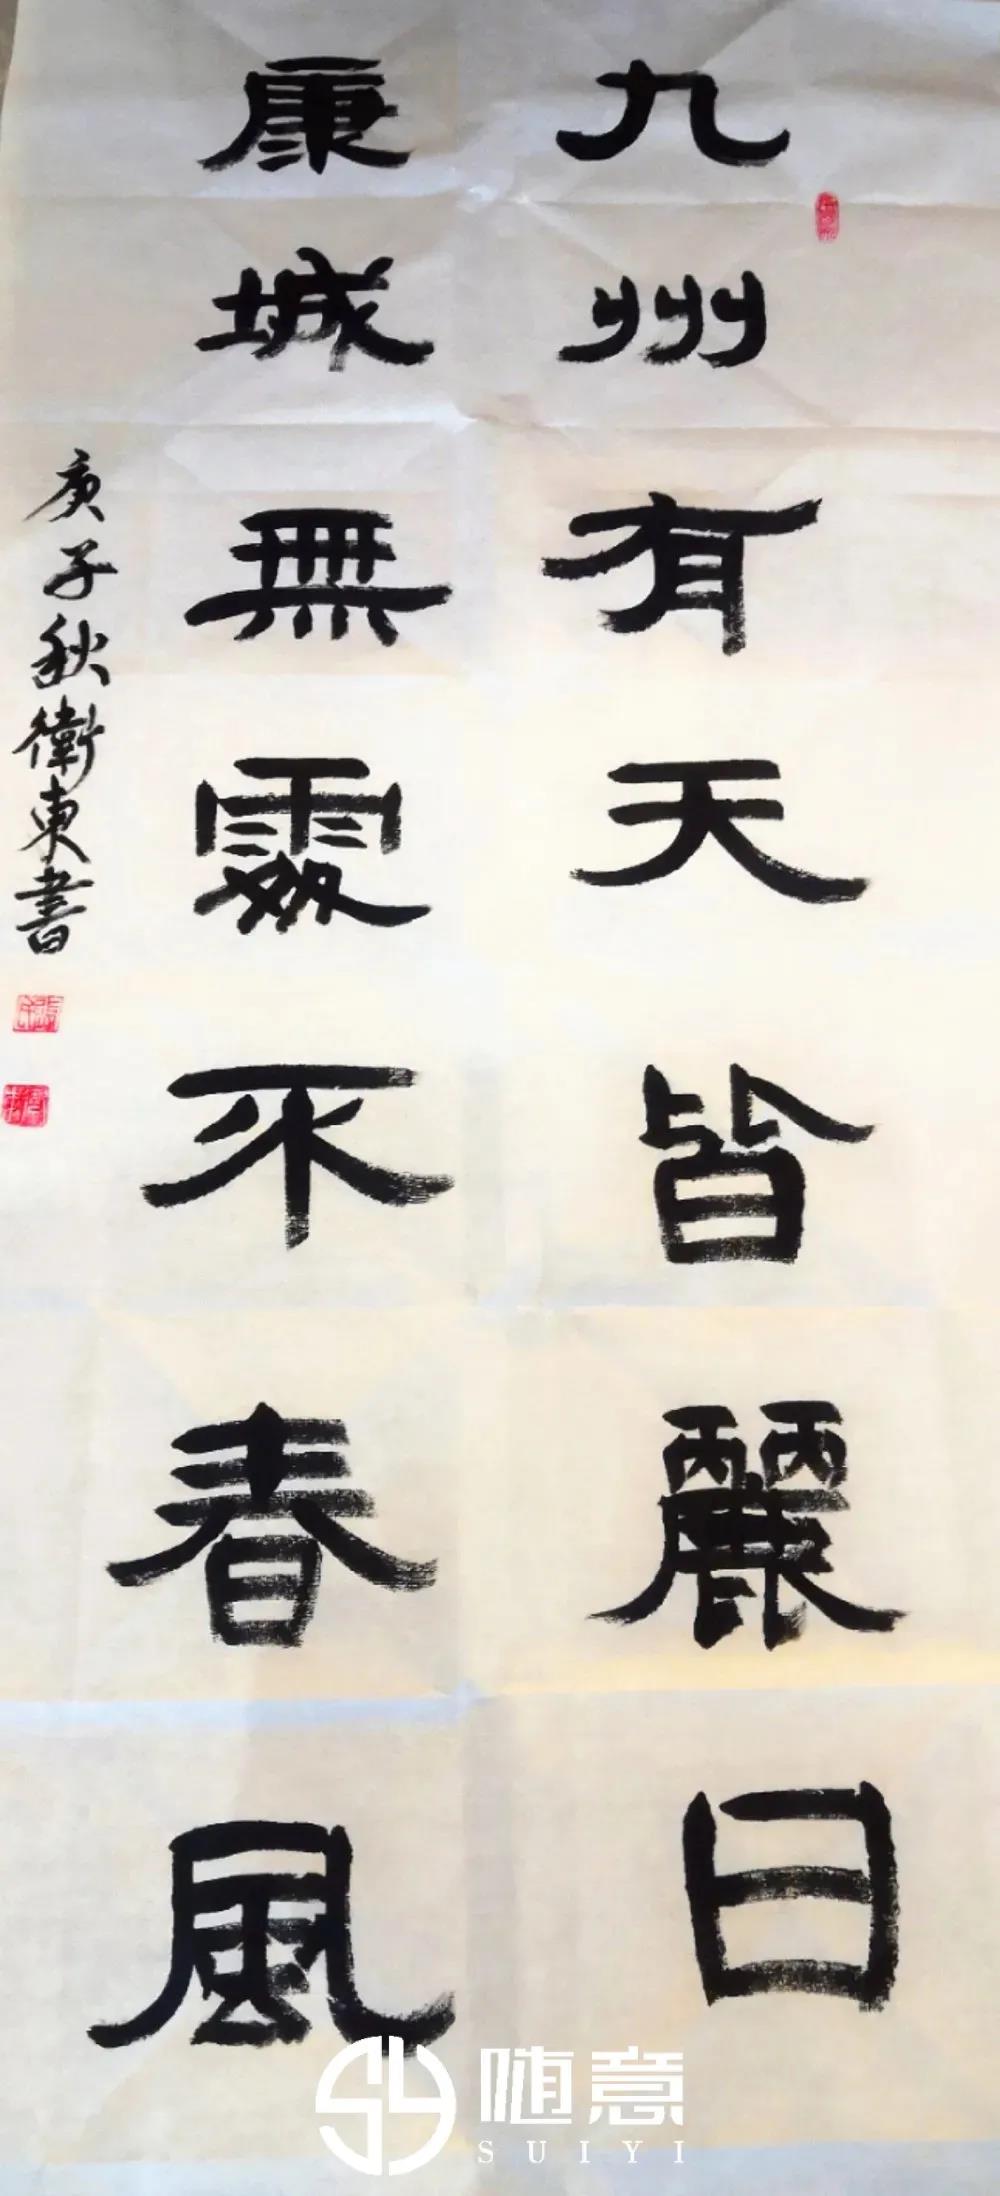 九州有天皆麗日
康城無處不春風
庚子秋衛東書
随意
SUIYI